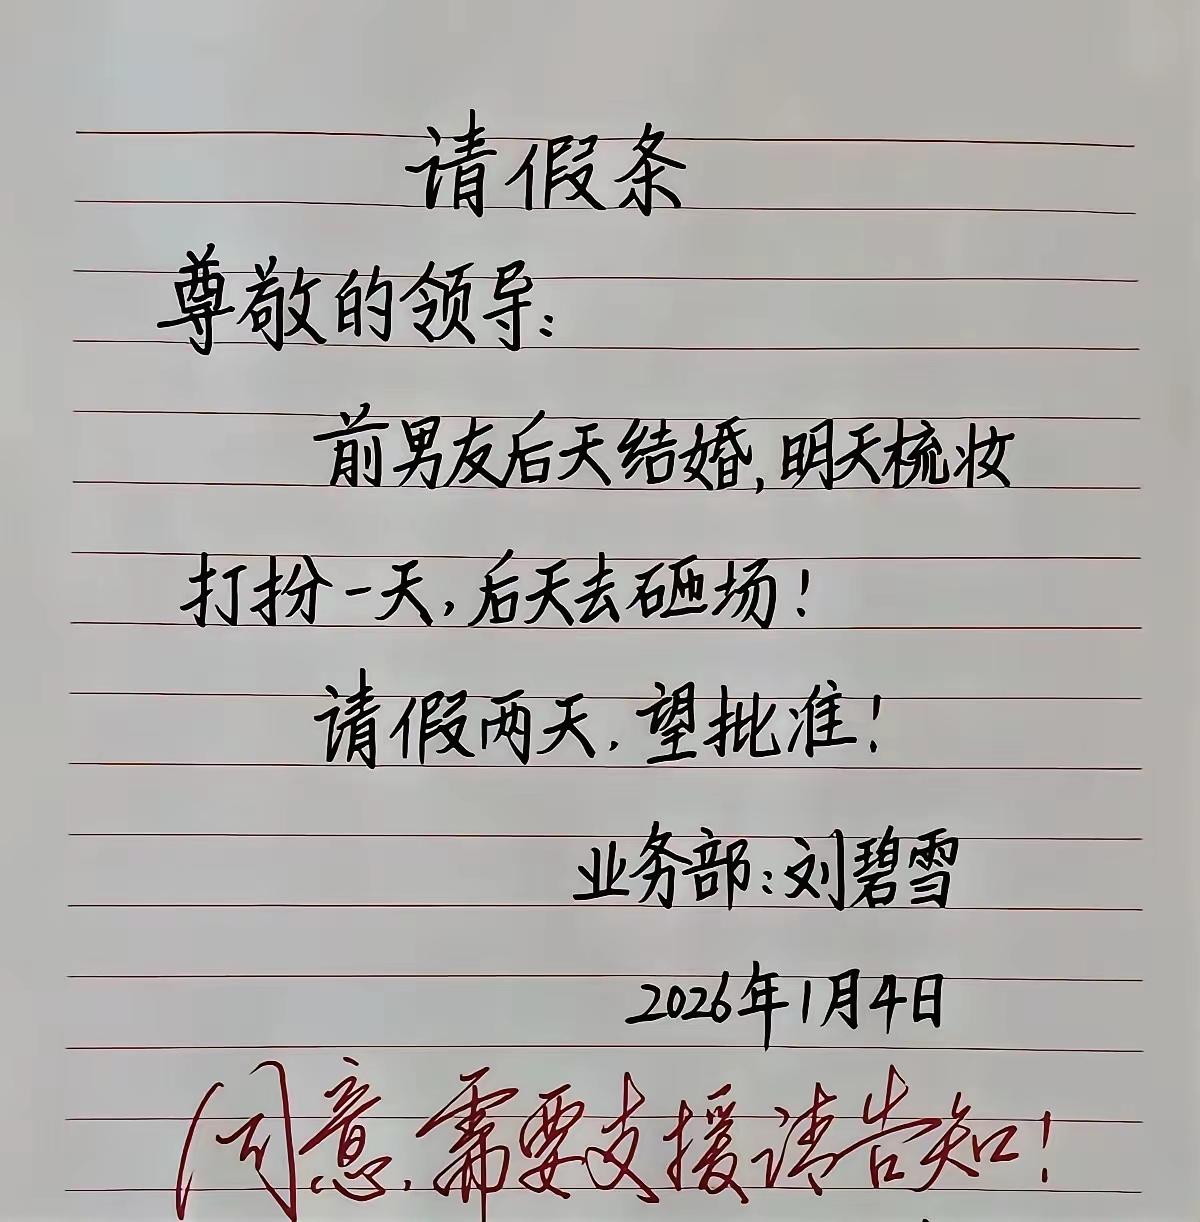 请假条
尊敬的领导：
前男友后天结婚，明天梳妆
打扮一天，后天去砸场！
请假两天，望批准！
业务部：刘碧雪
2026年1月4日
同意，需要支援请告知！